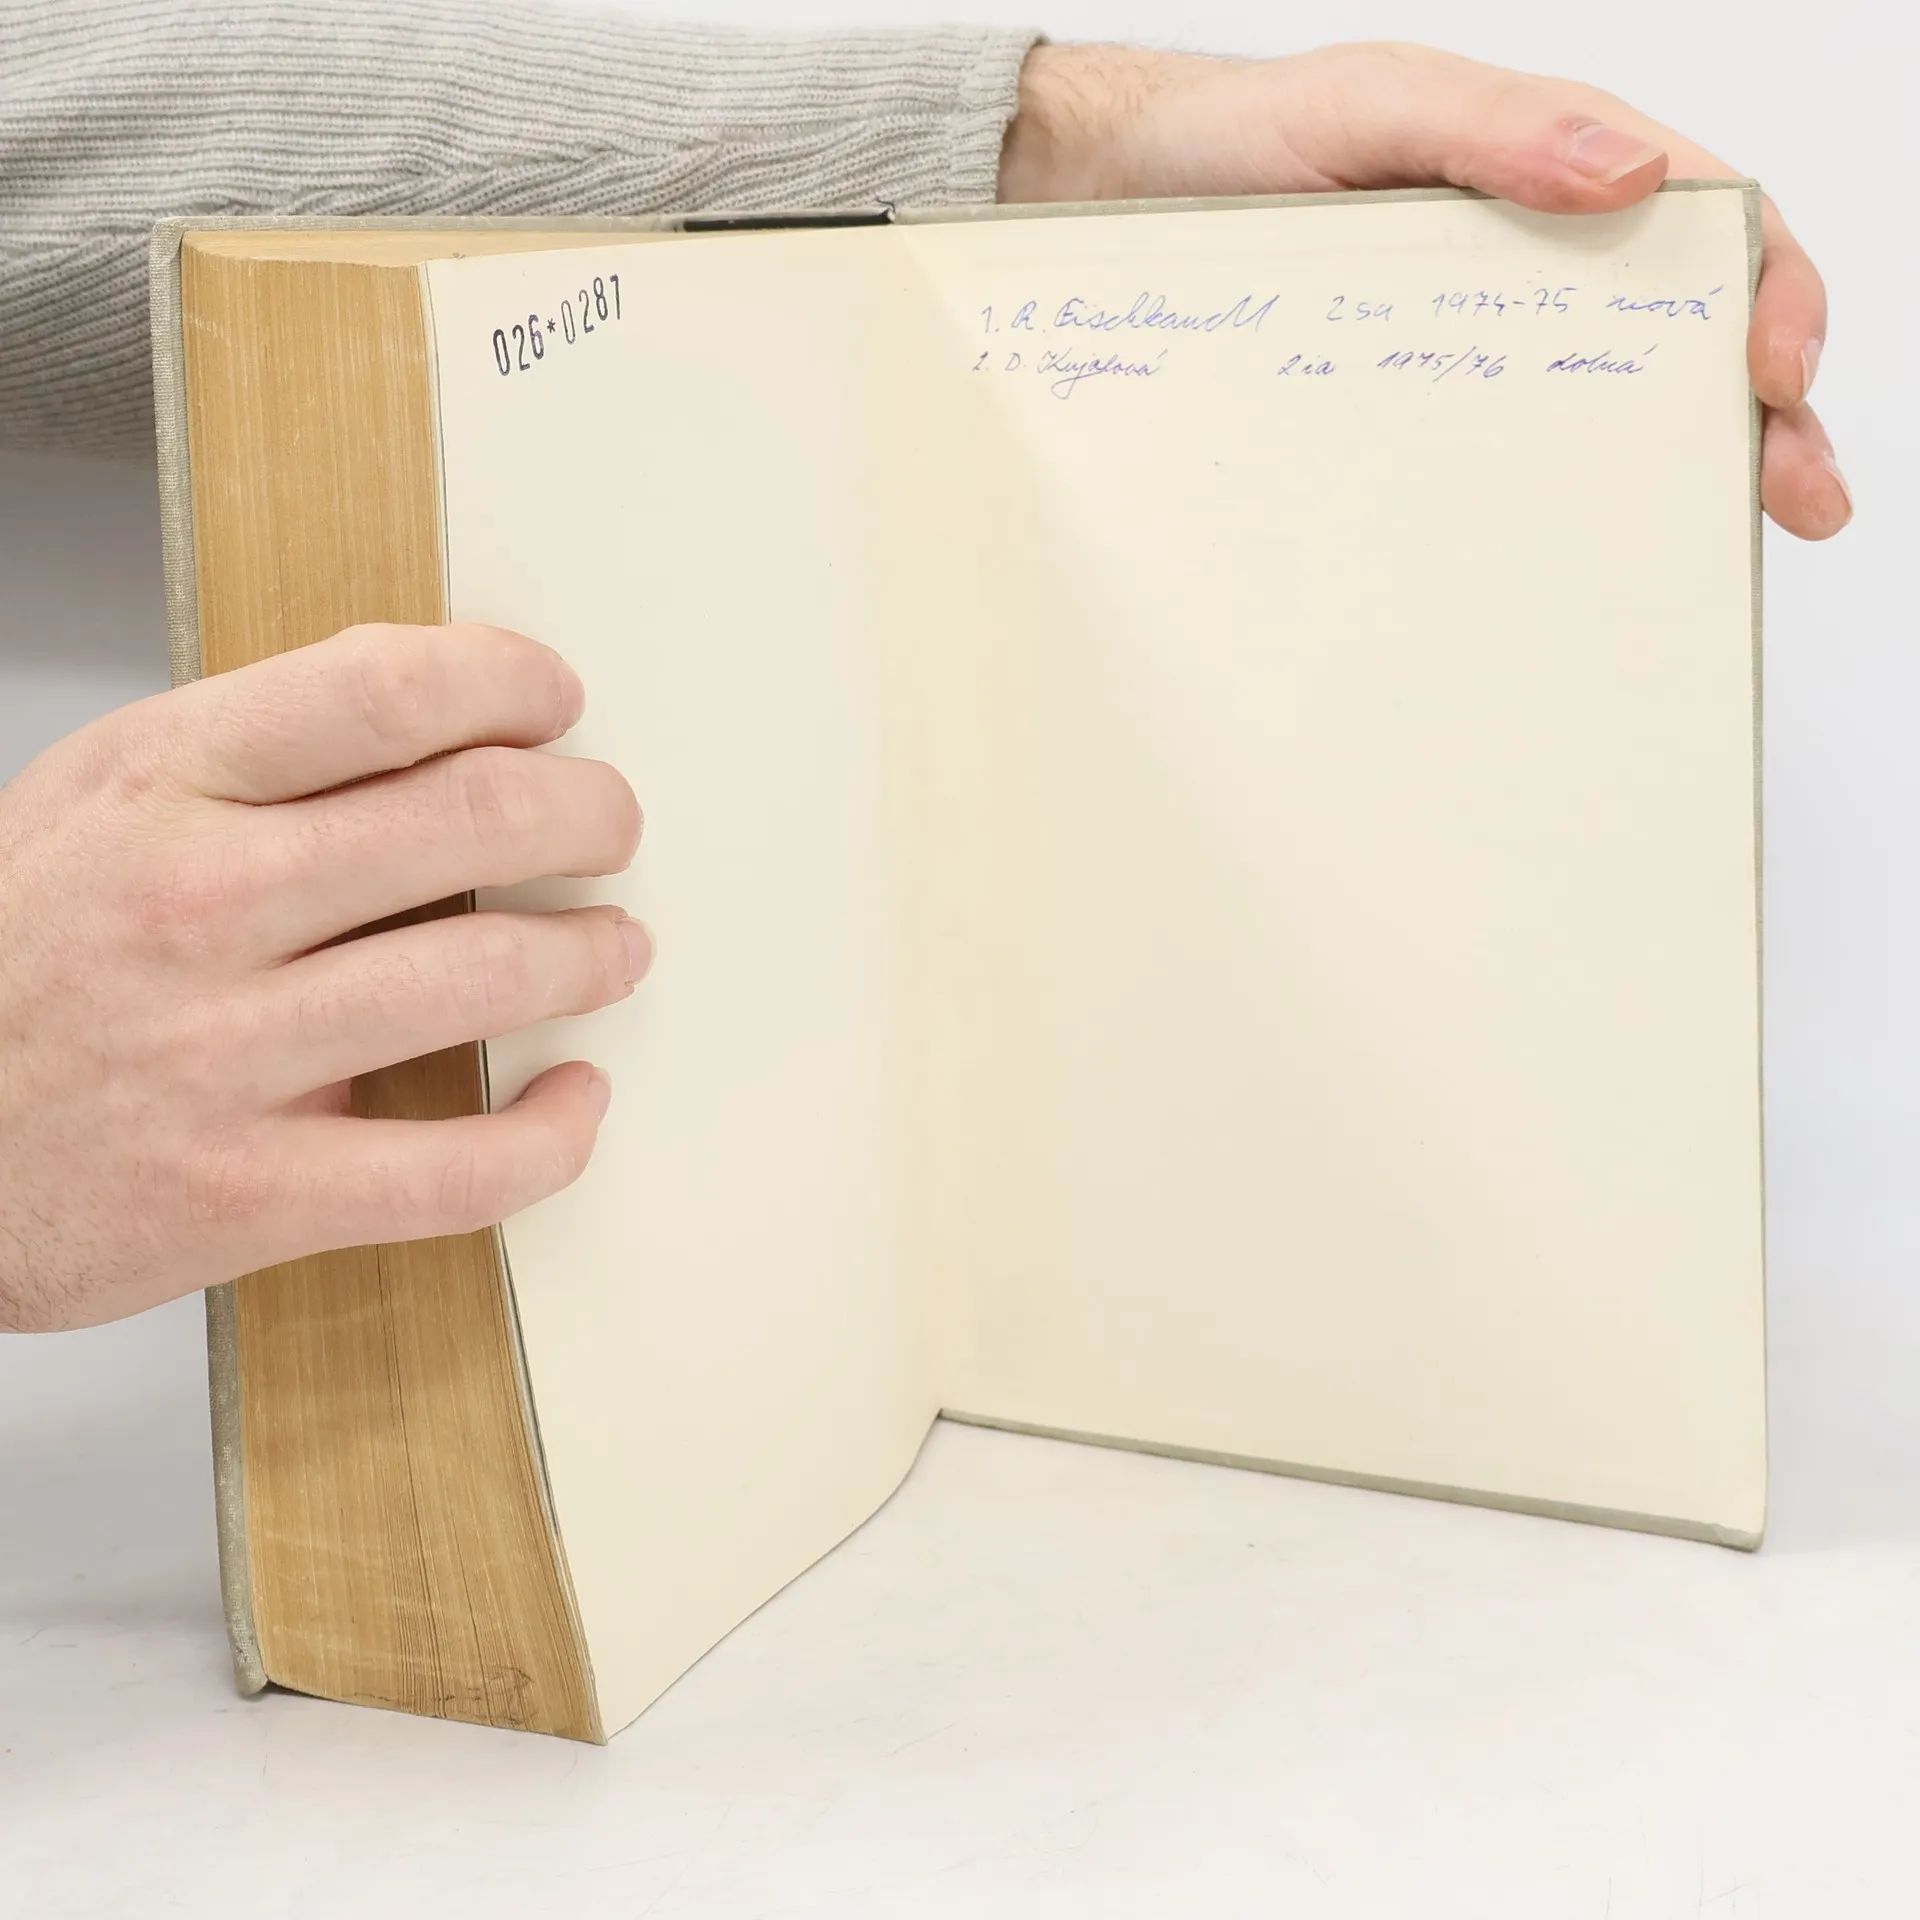 026*0287
1. R. 2sa 1974-75 nová
2. D. Kujalová 2ia 1975/76 dobrá